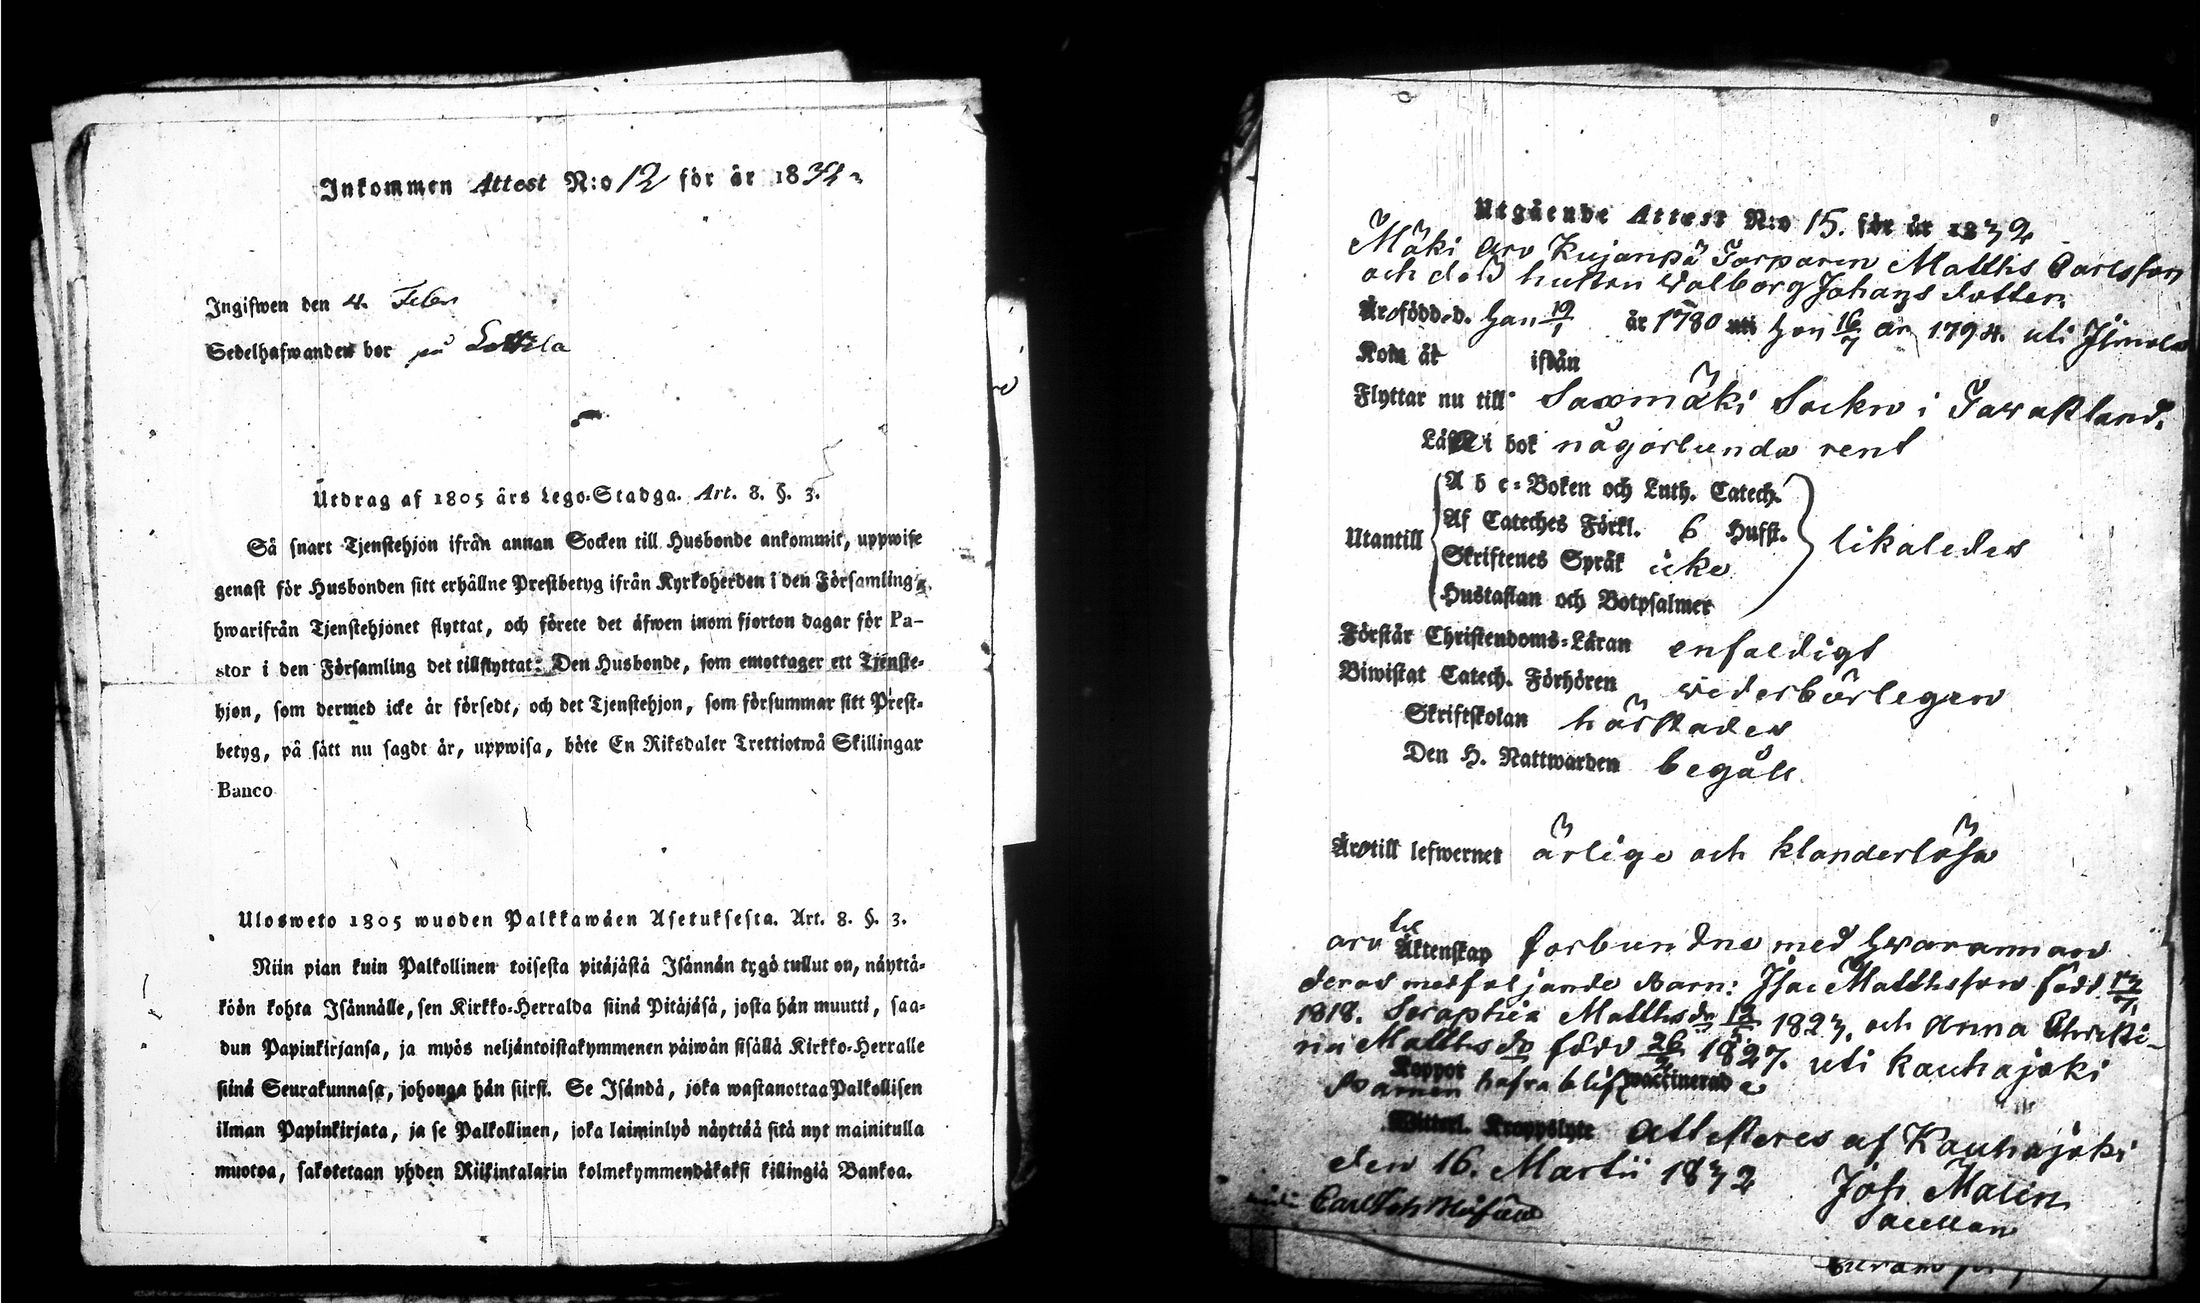 Inkommen Attest N:o 12 för år 1832
Ingifwen den 4. Febr
Sedelhafwanden bor på
Utdrag af 1805 års Lego-Stadga. Art. 8. §. 3.
Så snart Tjenstehjon ifrån annan Socken till Husbonde ankommit, uppwise
genast för Husbonden sitt erhållne Prestbetyg ifrån Kyrkoherden i den Församling,
hwarifrån Tjenstehjonet flyttat, och förete det äfwen inom fjorton dagar för Pa-
stor i den Församling det tillflyttat: Den Husbonde, som emottager ett Tjenste-
hjon, som dermed icke är försedt, och det Tjenstehjon, som försummar sitt Prest-
betyg, på sätt nu sagdt är, uppwisa, böte En Riksdaler Trettiotwå Skillingar
Banco
Ulosweto 1805 wuoden Palkkawäen Asetuksesta. Art. 8. §. 3.
Niin pian kuin Palkollinen toisesta pitäjästä Isännän tygö tullut on, näyttä-
köön kohta Isännälle, sen Kirkko-Herralda siinä Pitäjäsä, josta hän muutti, saa-
dun Papinkirjansa, ja myös neljäntoistakymmenen päiwän sisällä Kirkko-Herralle
siinä Seurakunnasa, johonga hän siirst. Se Isändä, joka wastanottaa Palkollisen
ilman Papinkirjata, ja se Palkollinen, joka laiminlyö näyttää sitä nyt mainitulla
muotoa, sakotetaan yhden Riikintalarin kolmekymmendäkaksi killingiä Bankoa.
Utgående Attest N:o 15. för år 1832
Mäki Kujanpä Torparen Matths Carlsson
och dess hustru Walborg Johans dotter
Äro född. d. han 19/1 år 1780 hon 16/7 år 1794. uti Ilmola
Kom år ifrån
Flyttar nu till Saxmäki Sockn i Tawastland.
Läser i bok någorlunda rent
Utantill
A b c-Boken och Luth. Catech.
Af Cateches Förkl. 6 Hufst.
Skriftenes Språk icke
Hustaflan och Botpsalmer
likaledes
Förstår Christendoms-Läran enfaldigt
Biwistat Catech. Förhören wederbörligen
Skriftskolan härstädes
Den H. Nattwarden begått
Äro till lefwernet ärlige och klanderlösa
äro till Äktenskap förbundne med hwarannan
deras medföljande Barn: Isac Matthsson född
1818. Seraphia Matthsdr 1823, och Anna Christi-
na Matthsdr född 26 1827. uti Kauhajoki
Barnen hafwa blifwit vaccinerade
Koppor
Witterl. Kroppslyte Attesteres af Kauhajoki
den 16. Martii 1832 Joh Malin
Sacellan